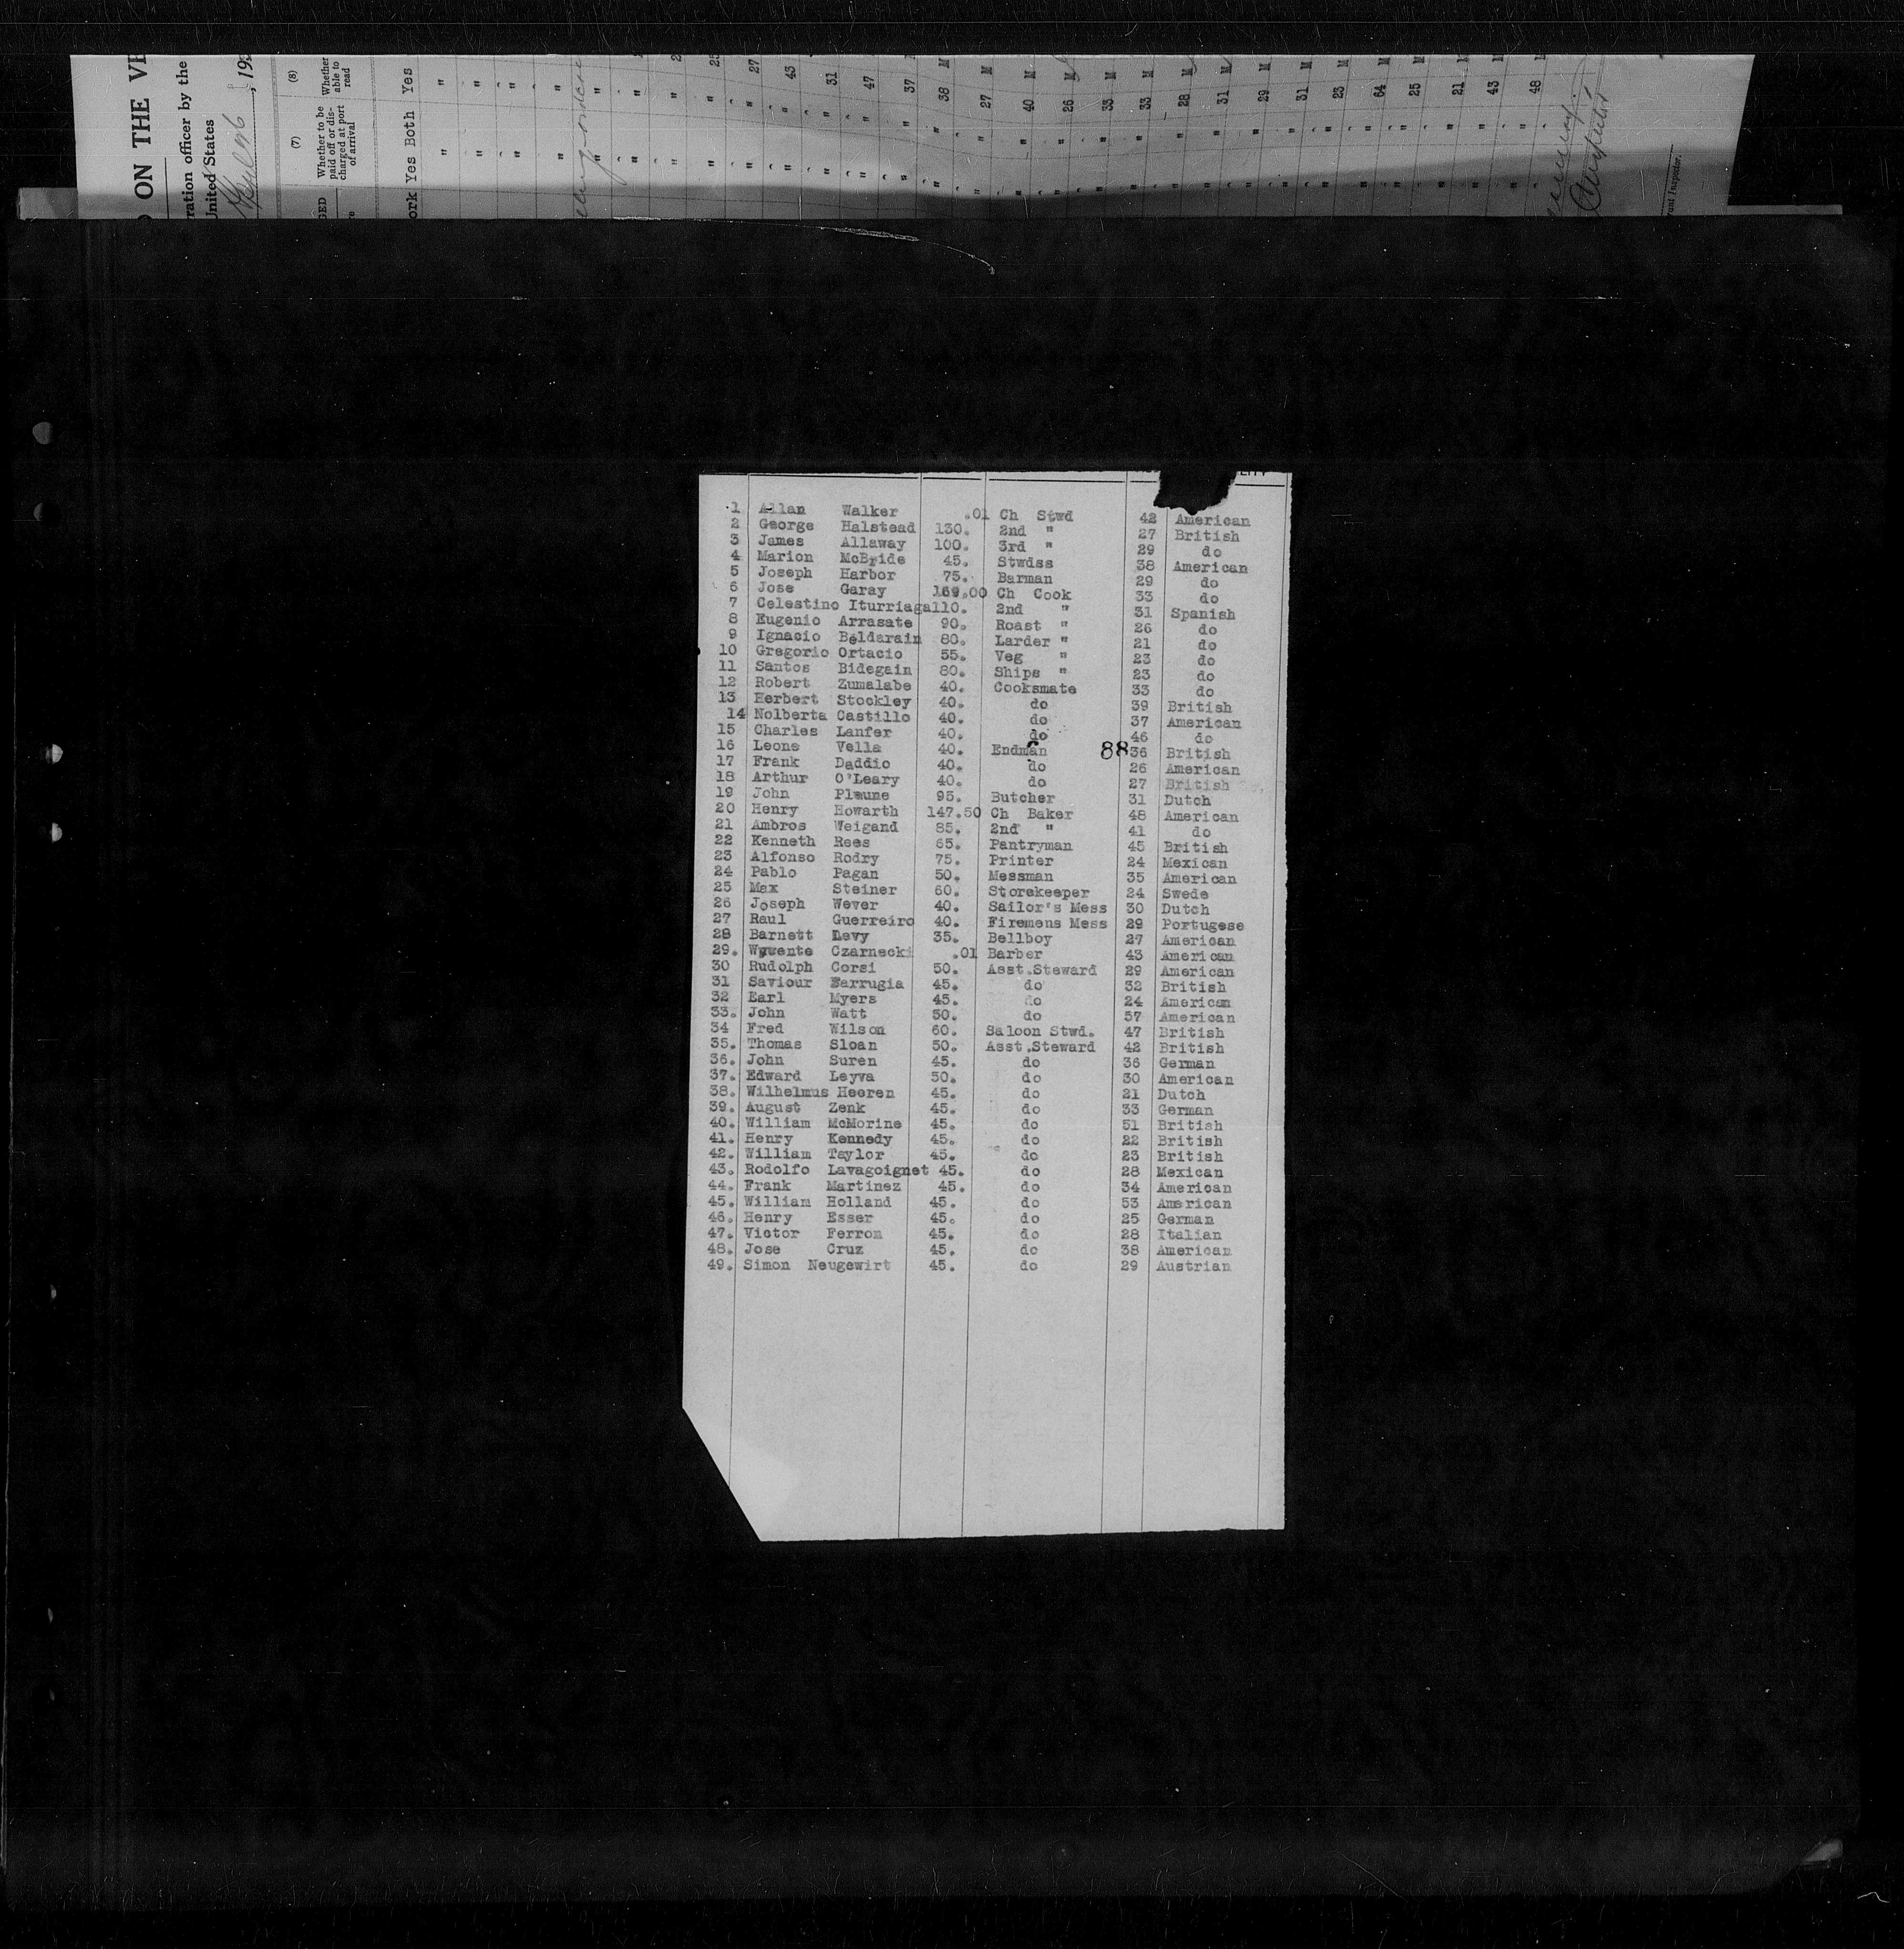 ON THE VE
ration officer by the
United States
, 19
(8)
Whether able to read
(7)
Whether to be paid off or dis-charged at port of arrival
ork Yes Both Yes
1 Allan Walker .01 Ch Stwd 42 American
2 George Halstead 130. 2nd " 27 British
3 James Allaway 100. 3rd " 29 do
4 Marion McBride 45. Stwdss 38 American
5 Joseph Harbor 75. Barman 29 do
6 Jose Garay 169.00 Ch Cook 33 do
7 Celestino Iturriaga110. 2nd " 31 Spanish
8 Eugenio Arrasate 90. Roast " 26 do
9 Ignacio Beldarain 80. Larder " 21 do
10 Gregorio Ortacio 55. Veg " 23 do
11 Santos Bidegain 80. Ships " 23 do
12 Robert Zumalabe 40. Cooksmate 33 do
13 Herbert Stockley 40. do 39 British
14 Nolberta Castillo 40. do 37 American
15 Charles Lanfer 40. do 46 do
16 Leone Vella 40. Endman 88 36 British
17 Frank Daddio 40. do 26 American
18 Arthur O'Leary 40. do 27 British
19 John Plaune 95. Butcher 31 Dutch
20 Henry Howarth 147.50 Ch Baker 48 American
21 Ambros Weigand 85. 2nd " 41 do
22 Kenneth Rees 65. Pantryman 45 British
23 Alfonso Rodry 75. Printer 24 Mexican
24 Pablo Pagan 50. Messman 35 American
25 Max Steiner 60. Storekeeper 24 Swede
26 Joseph Wever 40. Sailor's Mess 30 Dutch
27 Raul Guerreiro 40. Firemens Mess 29 Portugese
28 Barnett Levy 35. Bellboy 27 American
29. Czarnecki .01 Barber 43 American
30 Rudolph Corsi 50. Asst.Steward 29 American
31 Saviour Farrugia 45. do 32 British
32 Earl Myers 45. do 24 American
33. John Watt 50. do 57 American
34 Fred Wilson 60. Saloon Stwd. 47 British
35. Thomas Sloan 50. Asst.Steward 42 British
36. John Suren 45. do 36 German
37. Edward Leyva 50. do 30 American
38. Wilhelmus Heeren 45. do 21 Dutch
39. August Zenk 45. do 33 German
40. William McMorine 45. do 51 British
41. Henry Kennedy 45. do 22 British
42. William Taylor 45. do 23 British
43. Rodolfo Lavagoignet 45. do 28 Mexican
44. Frank Martinez 45. do 34 American
45. William Holland 45. do 53 American
46. Henry Esser 45. do 25 German
47. Victor Ferrom 45. do 28 Italian
48. Jose Cruz 45. do 38 American
49. Simon Neugewirt 45. do 29 Austrian